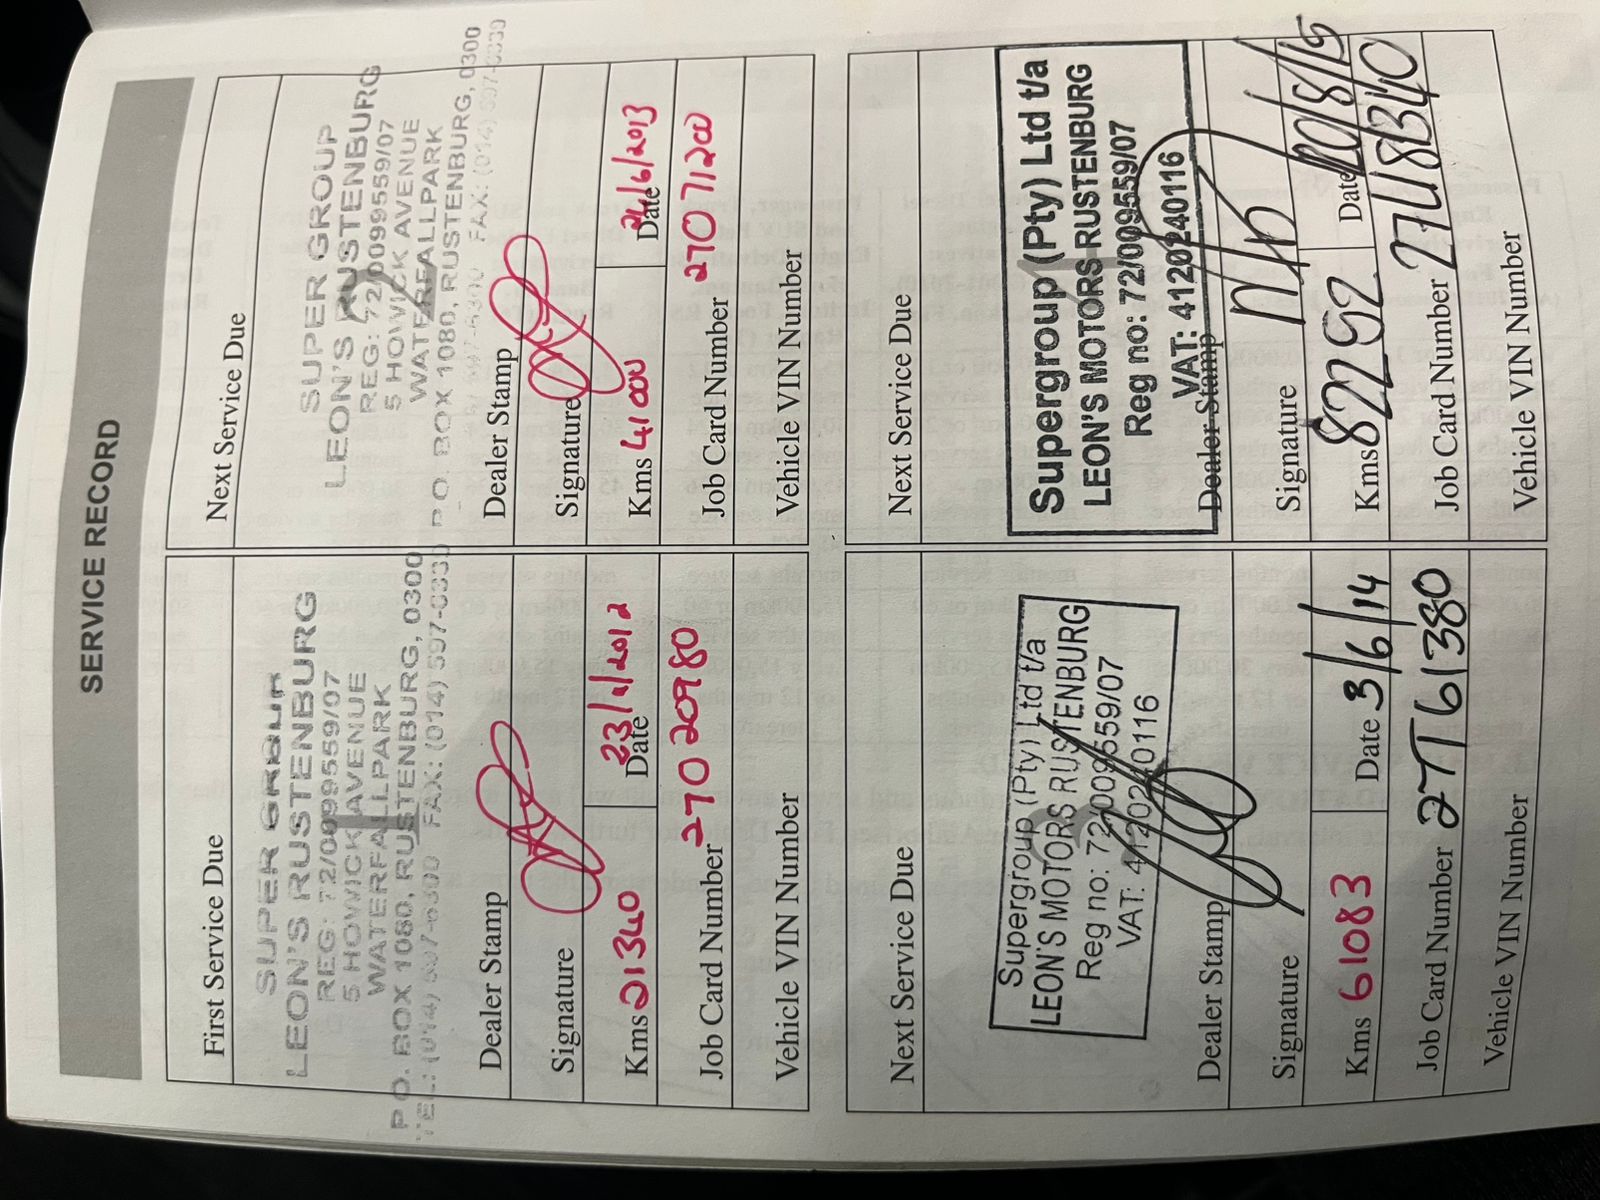 SERVICE RECORD
First Service Due
SUPER GROUP
LEON'S RUSTENBURG
REG: 72/009559/07
5 HOWICK AVENUE
WATERFALLPARK
P.O. BOX 1080, RUSTENBURG, 0300
TEL: (014) 597-6300 FAX: (014) 597-0330
1
Dealer Stamp
Signature
Kms 21340 Date
Job Card Number 27020980
Vehicle VIN Number
Next Service Due
SUPER GROUP
LEON'S RUSTENBURG
REG: 72/009559/07
5 HOWICK AVENUE
WATERFALLPARK
P.O. BOX 1080, RUSTENBURG, 0300
FAX: (014) 597-0330
2
Dealer Stamp
Signature
Kms 41000 Date
Job Card Number 27071200
Vehicle VIN Number
Next Service Due
Supergroup (Pty) Ltd t/a
LEON'S MOTORS RUSTENBURG
Reg no: 72/009559/07
VAT: 4120240116
Dealer Stamp
Signature
Kms 61083 Date 3/6/14
Job Card Number 27T61380
Vehicle VIN Number
Next Service Due
Supergroup (Pty) Ltd t/a
LEON'S MOTORS RUSTENBURG
Reg no: 72/009559/07
VAT: 4120240116
Dealer Stamp
Signature
Kms 82292 Date
Job Card Number
Vehicle VIN Number